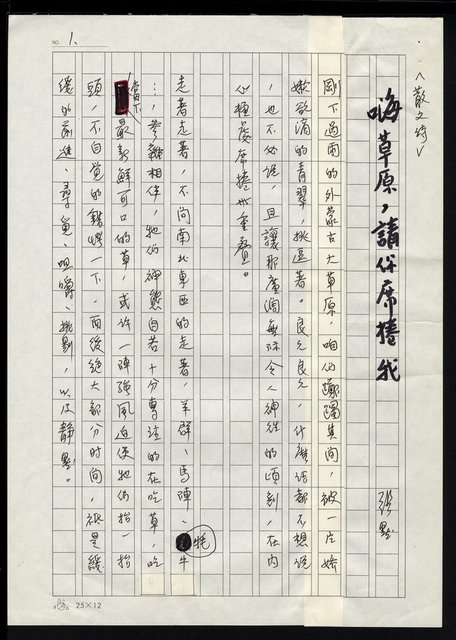 NO. 1.
〈散文詩〉
嗨草原，請你席捲我
張默
剛下過雨的外蒙古大草原，咱們躑躅其間，被一片嬌
嫩欲滴的青翠，挑逗著。良久良久，什麼話都不想說
，也不必說，且讓那廣濶無際令人神往的頃刻，在內
心裡席捲
走著走著，不問南北東西的走著，羊群、馬陣、牦牛
…，等雜相伴，牠們神態自若十分專注的在吃草，吃
當下最新鮮可口的草，或許一陣強風迫使牠們抬一抬
頭，不自覺的錯愕一下，而後絕大部分时间，祇是緩
緩的前進、尋覓、咀嚼、挑剔，以及靜默。
25×12